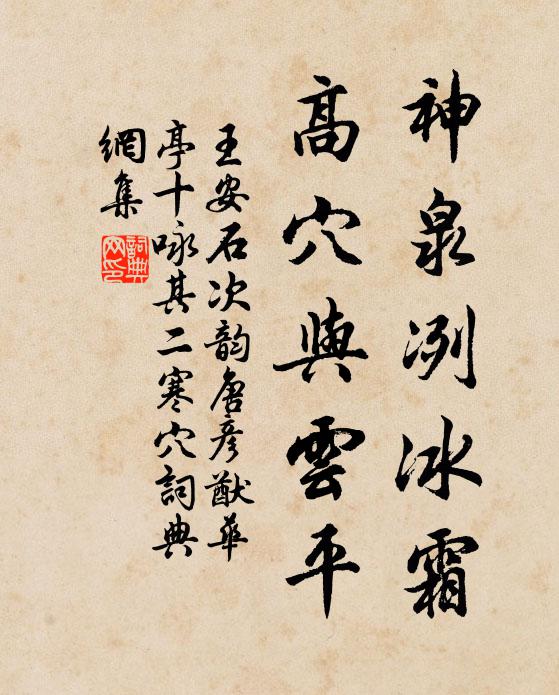 神泉冽冰霜
高穴與雲平
王安石次韵唐彦猷華
亭十咏其二寒穴詞典
網集
詞典網印